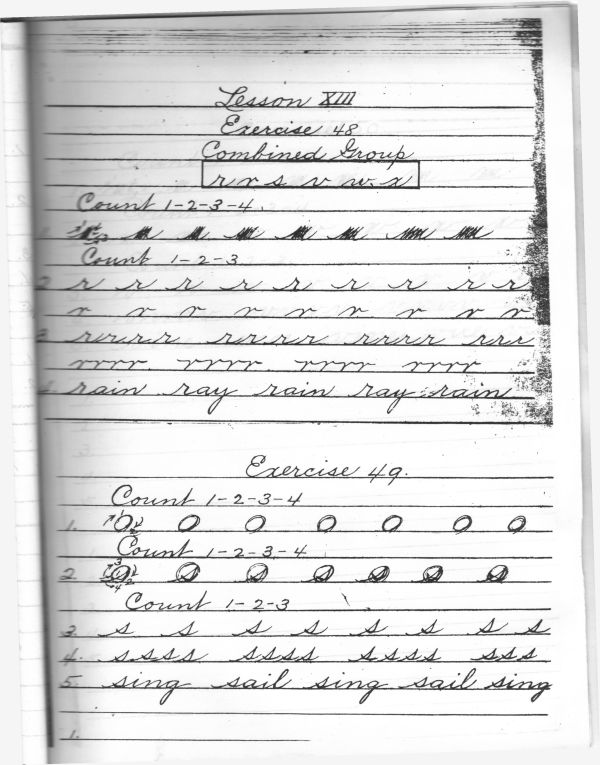 Lesson XIII
Exercise 48
Combined Group
r r s v w x
Count 1-2-3-4.
1.
Count 1-2-3
2 r r r r r r r r r
r r r r r r r r
3 rrrrr rrrrr rrrr rrr
rrrr rrrr rrrr rrrr
4 rain ray rain ray rain
Exercise 49.
Count 1-2-3-4
1. O O O O O O O
Count 1-2-3-4
2
Count 1-2-3
3. s s s s s s s s
4. ssss ssss ssss sss
5. sing sail sing sail sing
1.